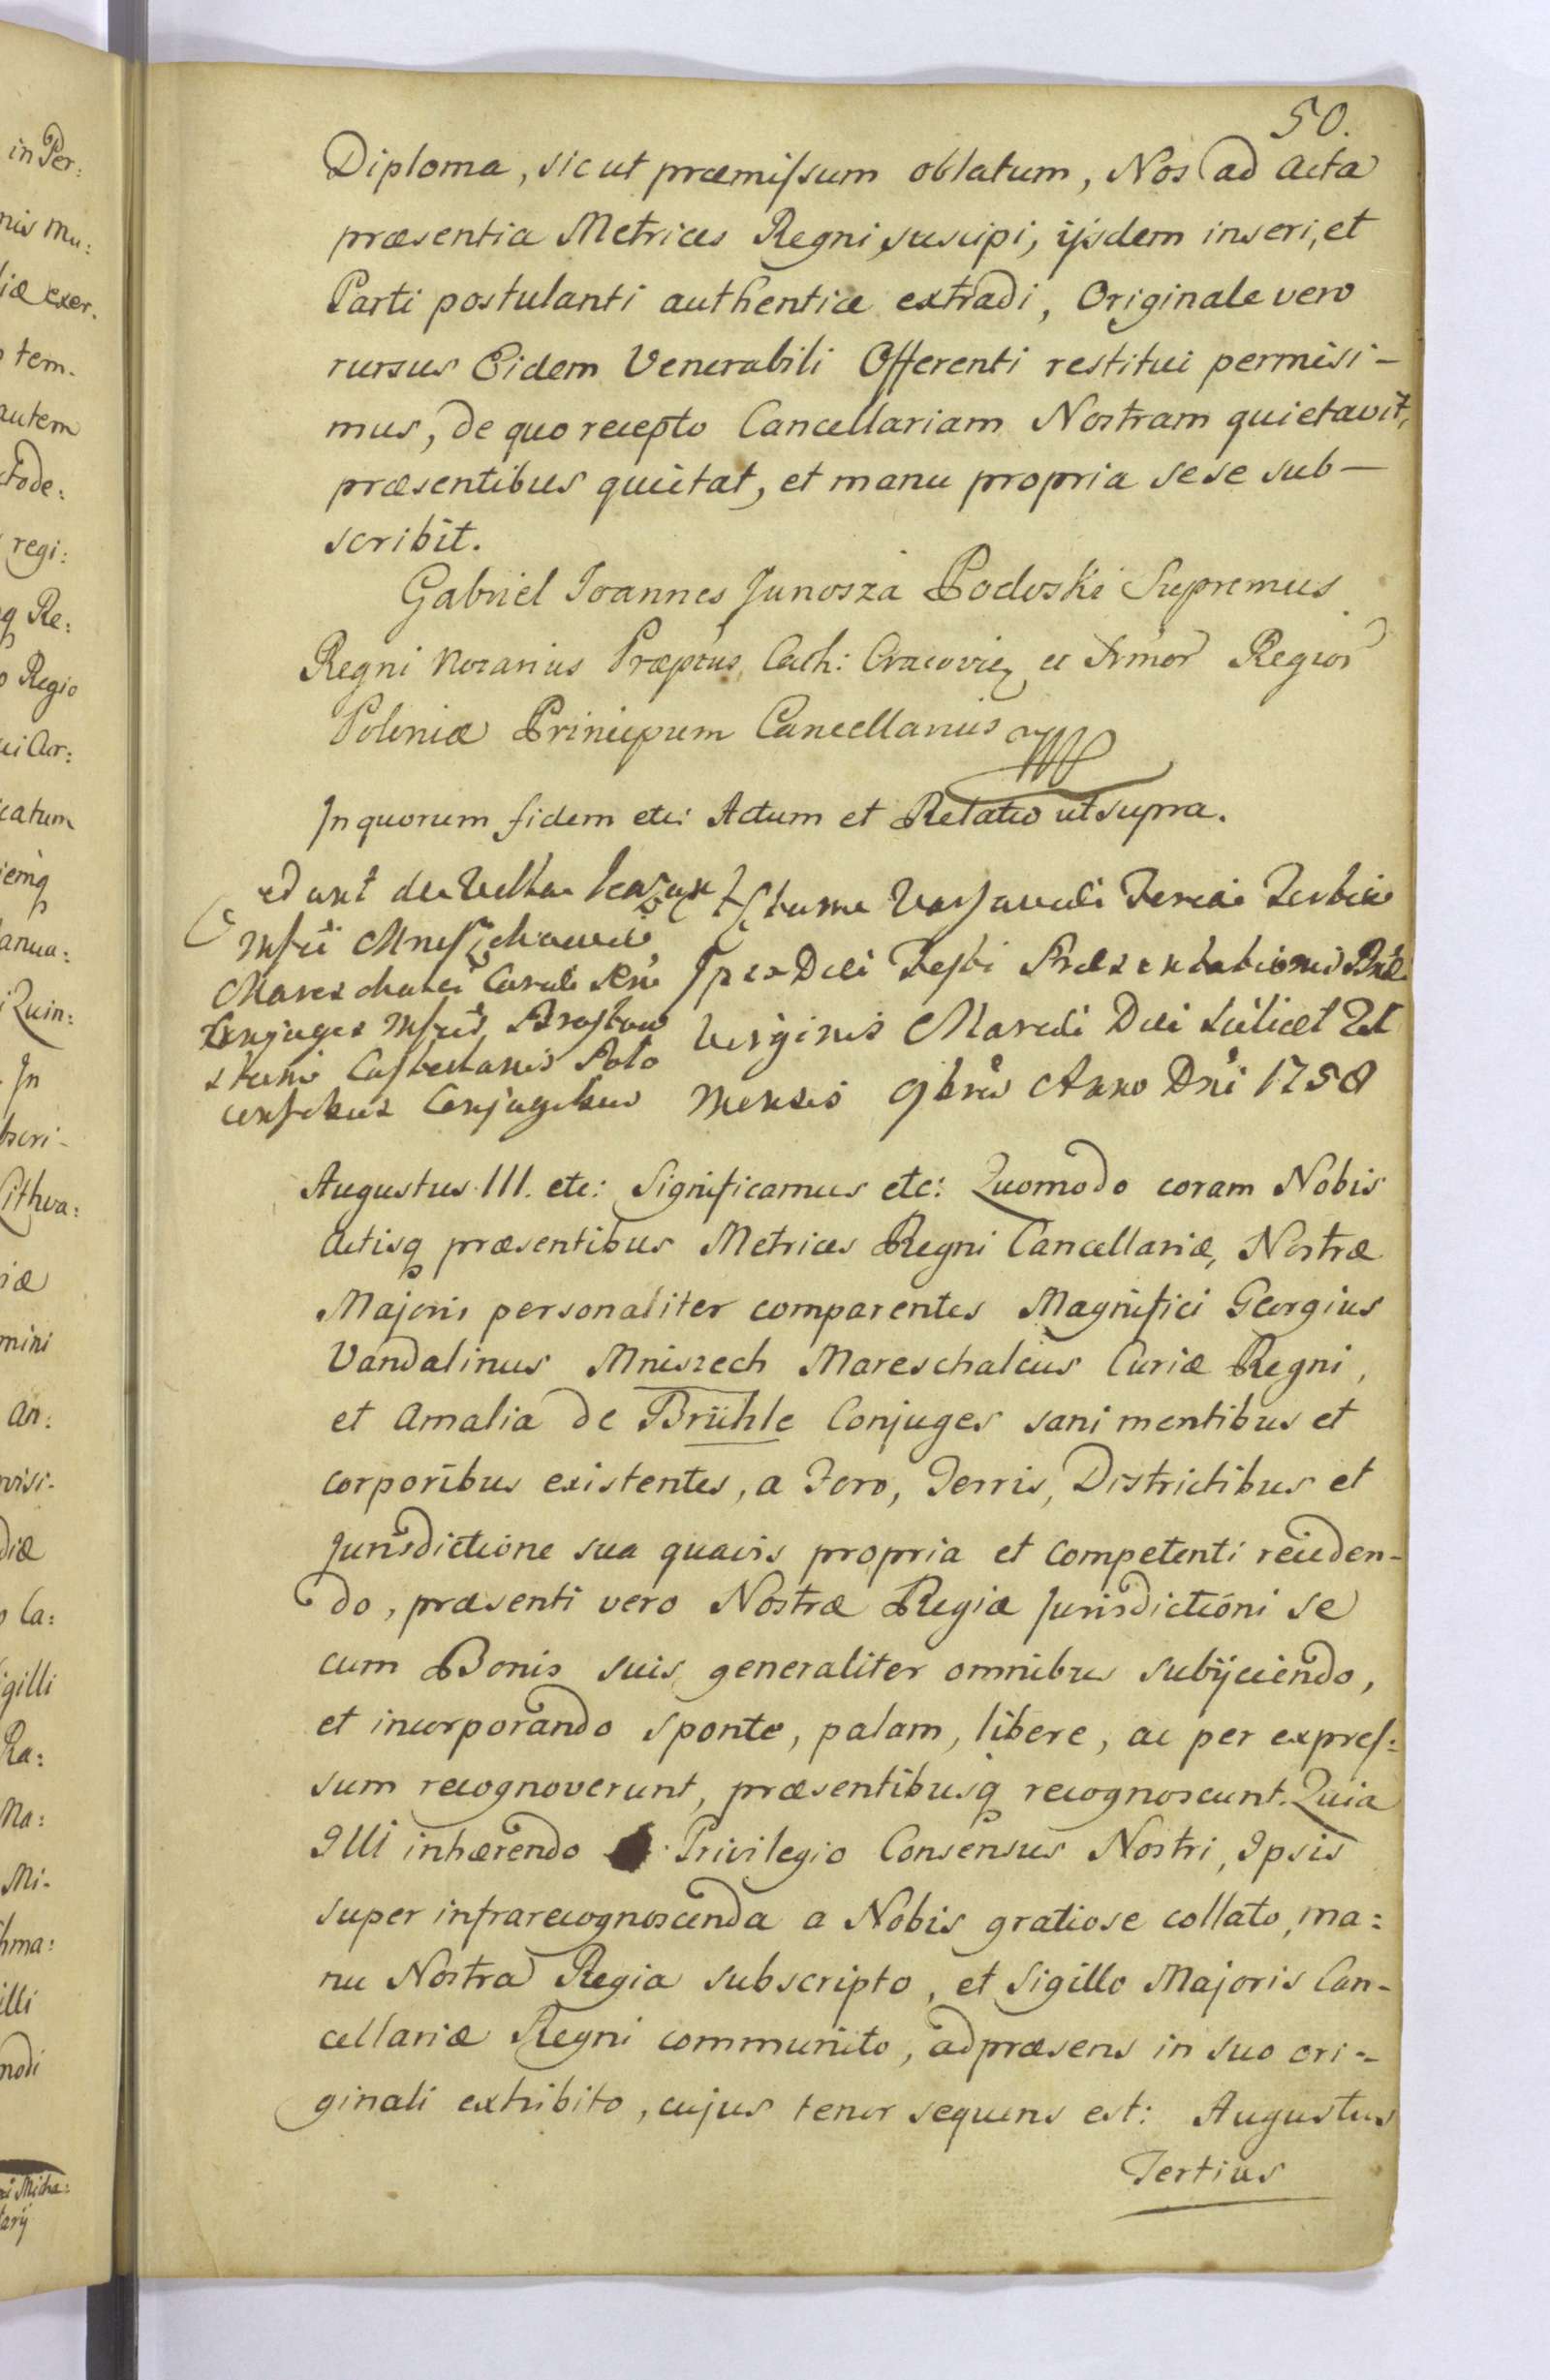 50.
Diploma, sicut præmissum oblatum, Nos ad acta
præsentia Metrices Regni suscipi, ijsdem inseri, et
Parti postulanti authentice extradi, Originale vero
rursus Eidem Venerabili Offerenti restitui permisi-
mus, de quo recepto Cancellariam Nostram quietavit,
præsentibus quietat, et manu propria sese sub-
scribit.
Gabriel Joannes Junosza Podoski Supremus
Regni Notarius Præptus Cath: Cracovien et Srmor Regior
Poloniæ Principum Cancellarius
In quorum fidem etc: Actum et Relatio ut supra.
Cedunt de Villa
Mfci Mniszchowie
Mareschalci Curiæ Rni
Conjuges Mfcis
Castellanis Poło
censibus Conjugibus
Actum Varsaviæ Feria Tertia
Ipso Die Festi Præsentationis Btæ
Virginis Mariæ Die scilicet 21
Mensis 9bris Anno Dni 1758
Augustus III. etc: Significamus etc: Quomodo coram Nobis
Actisq præsentibus Metrices Regni Cancellariæ, Nostræ
Majoris personaliter comparentes Magnifici Georgius
Vandalinus Mniszech Mareschalcus Curiæ Regni,
et Amalia de Brühle Conjuges sani mentibus et
corporibus existentes, a Foro, Terris, Districtibus et
Jurisdictione sua quavis propria et competenti reieden-
do, præsenti vero Nostræ Regiæ Jurisdictioni se
cum Bonis suis generaliter omnibus subijciendo,
et incorporando sponte, palam, libere, ac per expres:
sum recognoverunt, præsentibusq recognoscunt. Quia
Illi inhærendo Privilegio Consensus Nostri, Ipsis
super infrarecognoscenda a Nobis gratiose collato, ma:
nu Nostra Regia subscripto, et Sigillo Majoris Can-
cellariæ Regni communito, ad præsens in suo ori-
ginali exhibito, cujus tenor sequens est: Augustus
Tertius